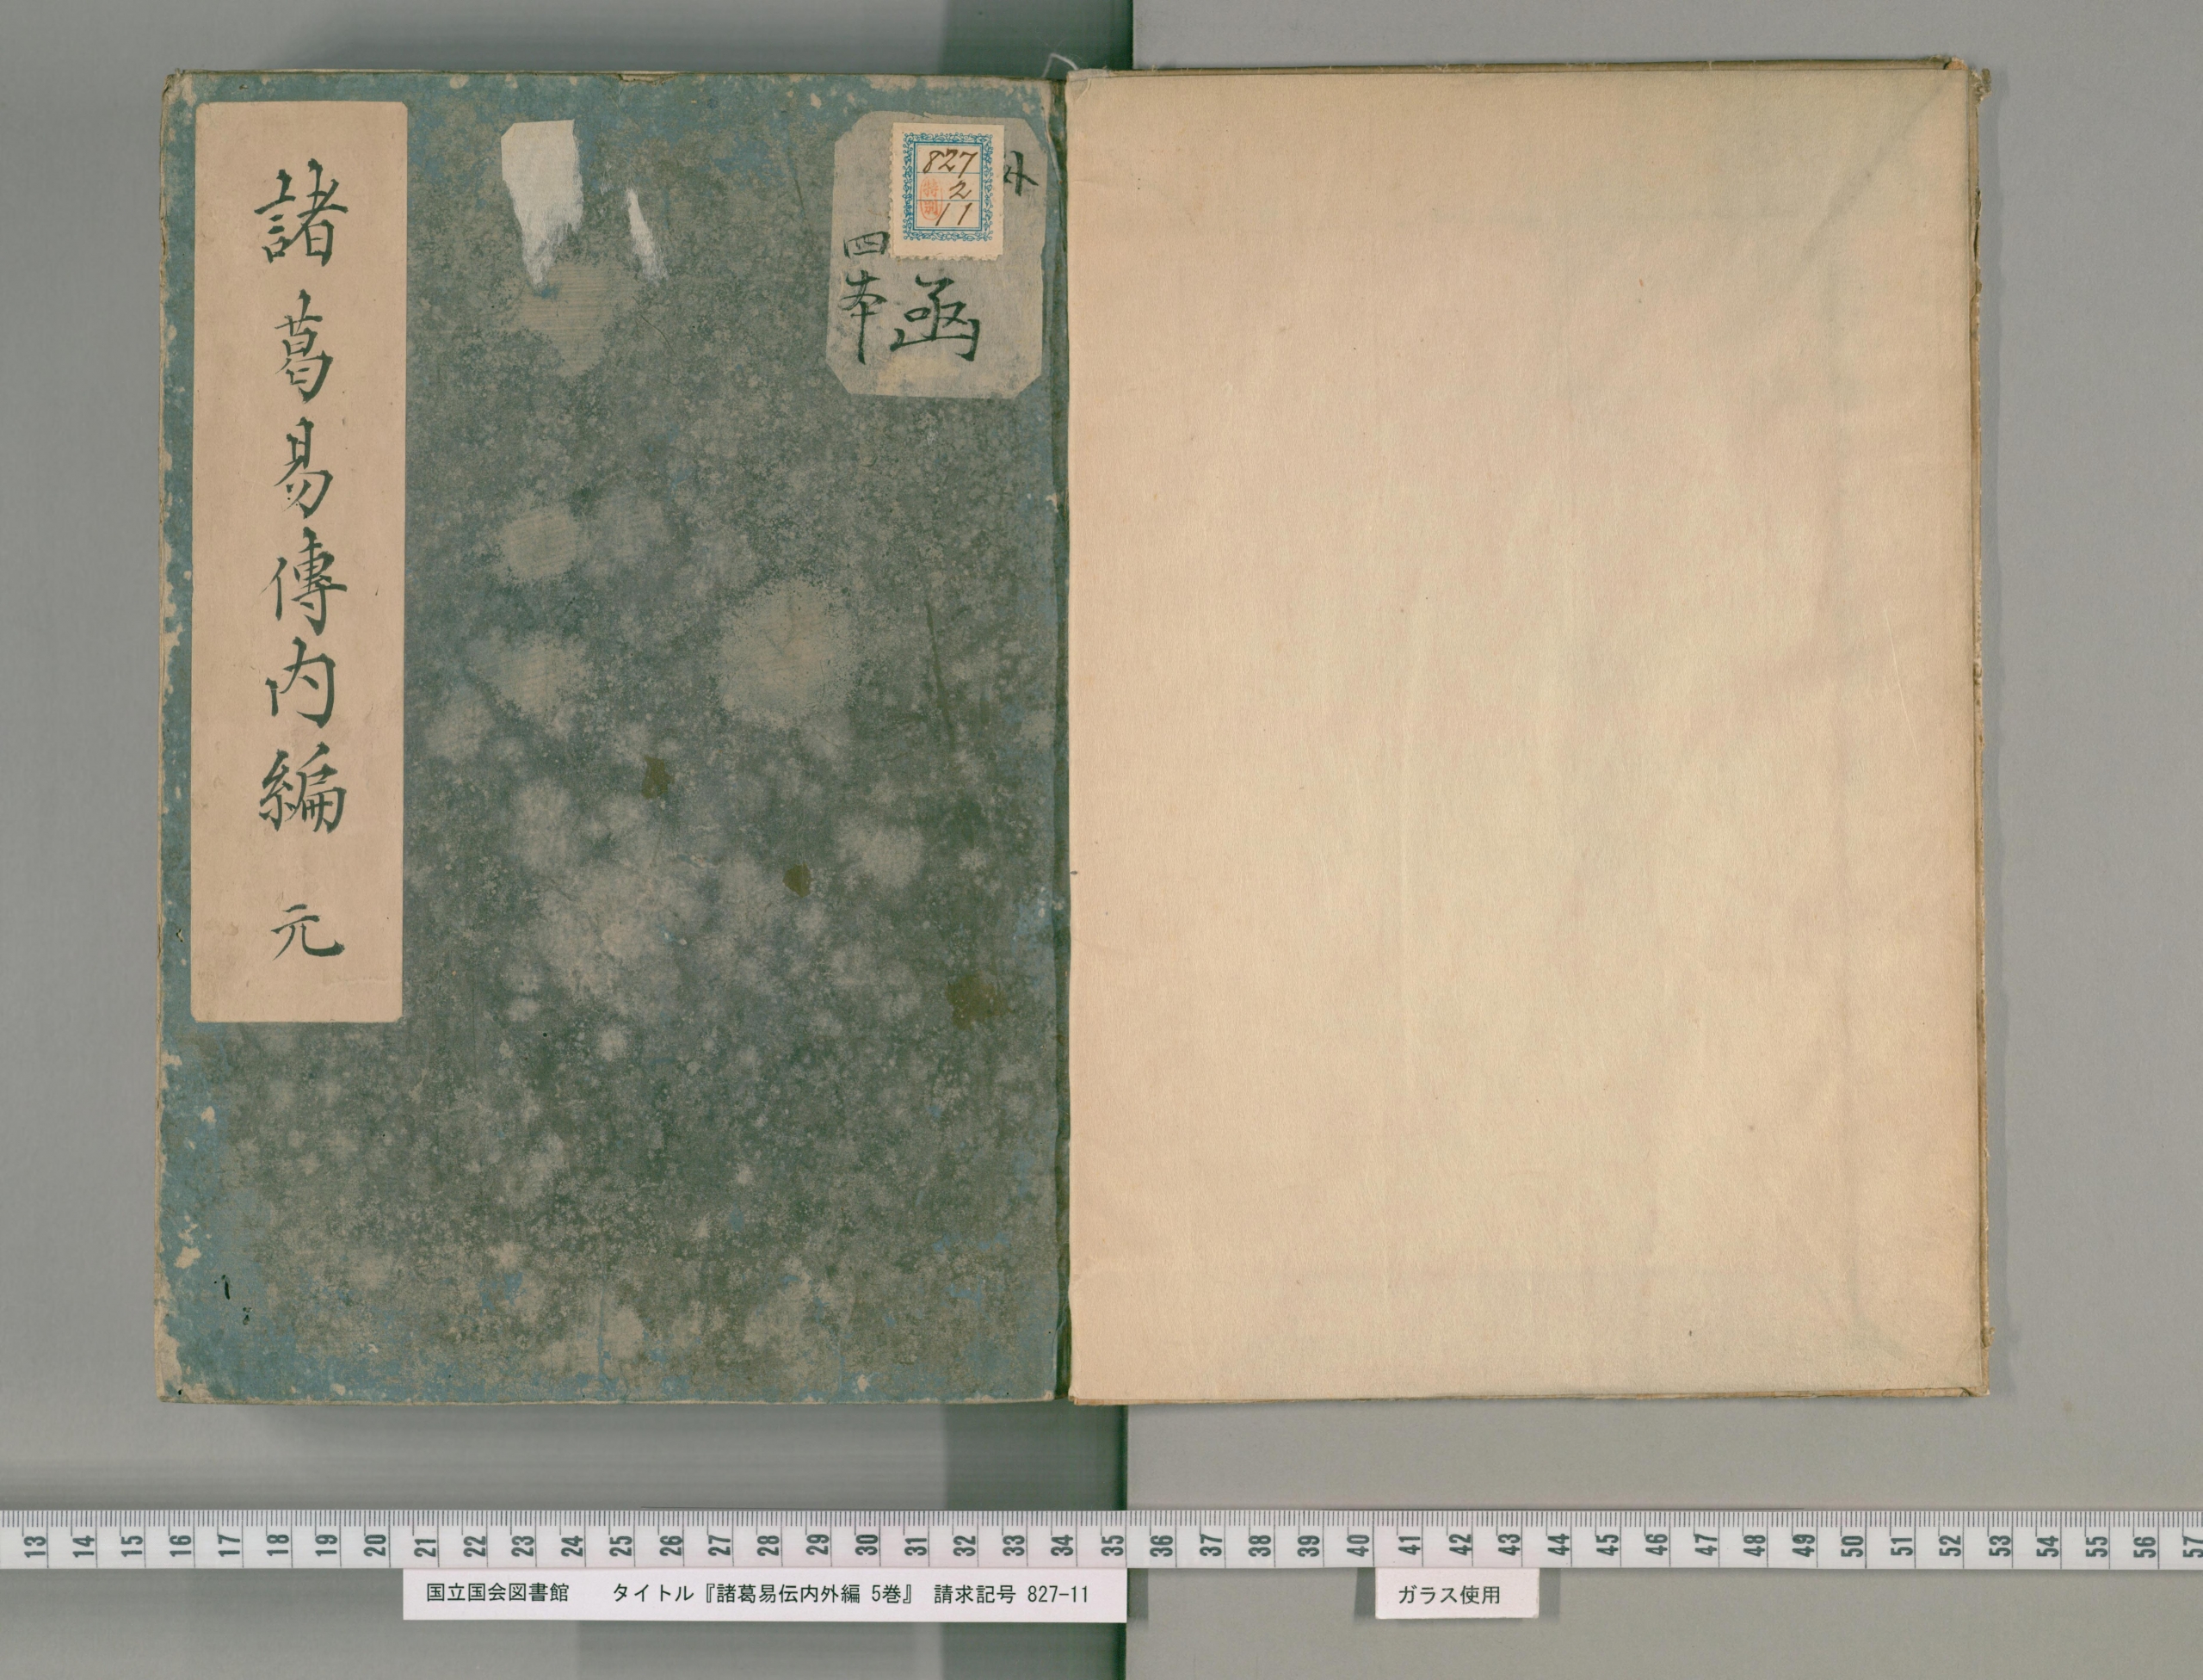 諸葛易傳内編 元
外
函
四本
827
2
11
特別
13 14 15 16 17 18 19 20 21 22 23 24 25 26 27 28 29 30 31 32 33 34 35 36 37 38 39 40 41 42 43 44 45 46 47 48 49 50 51 52 53 54 55 56 57
国立国会図書館 タイトル『諸葛易伝内外編 5巻』 請求記号 827-11
ガラス使用